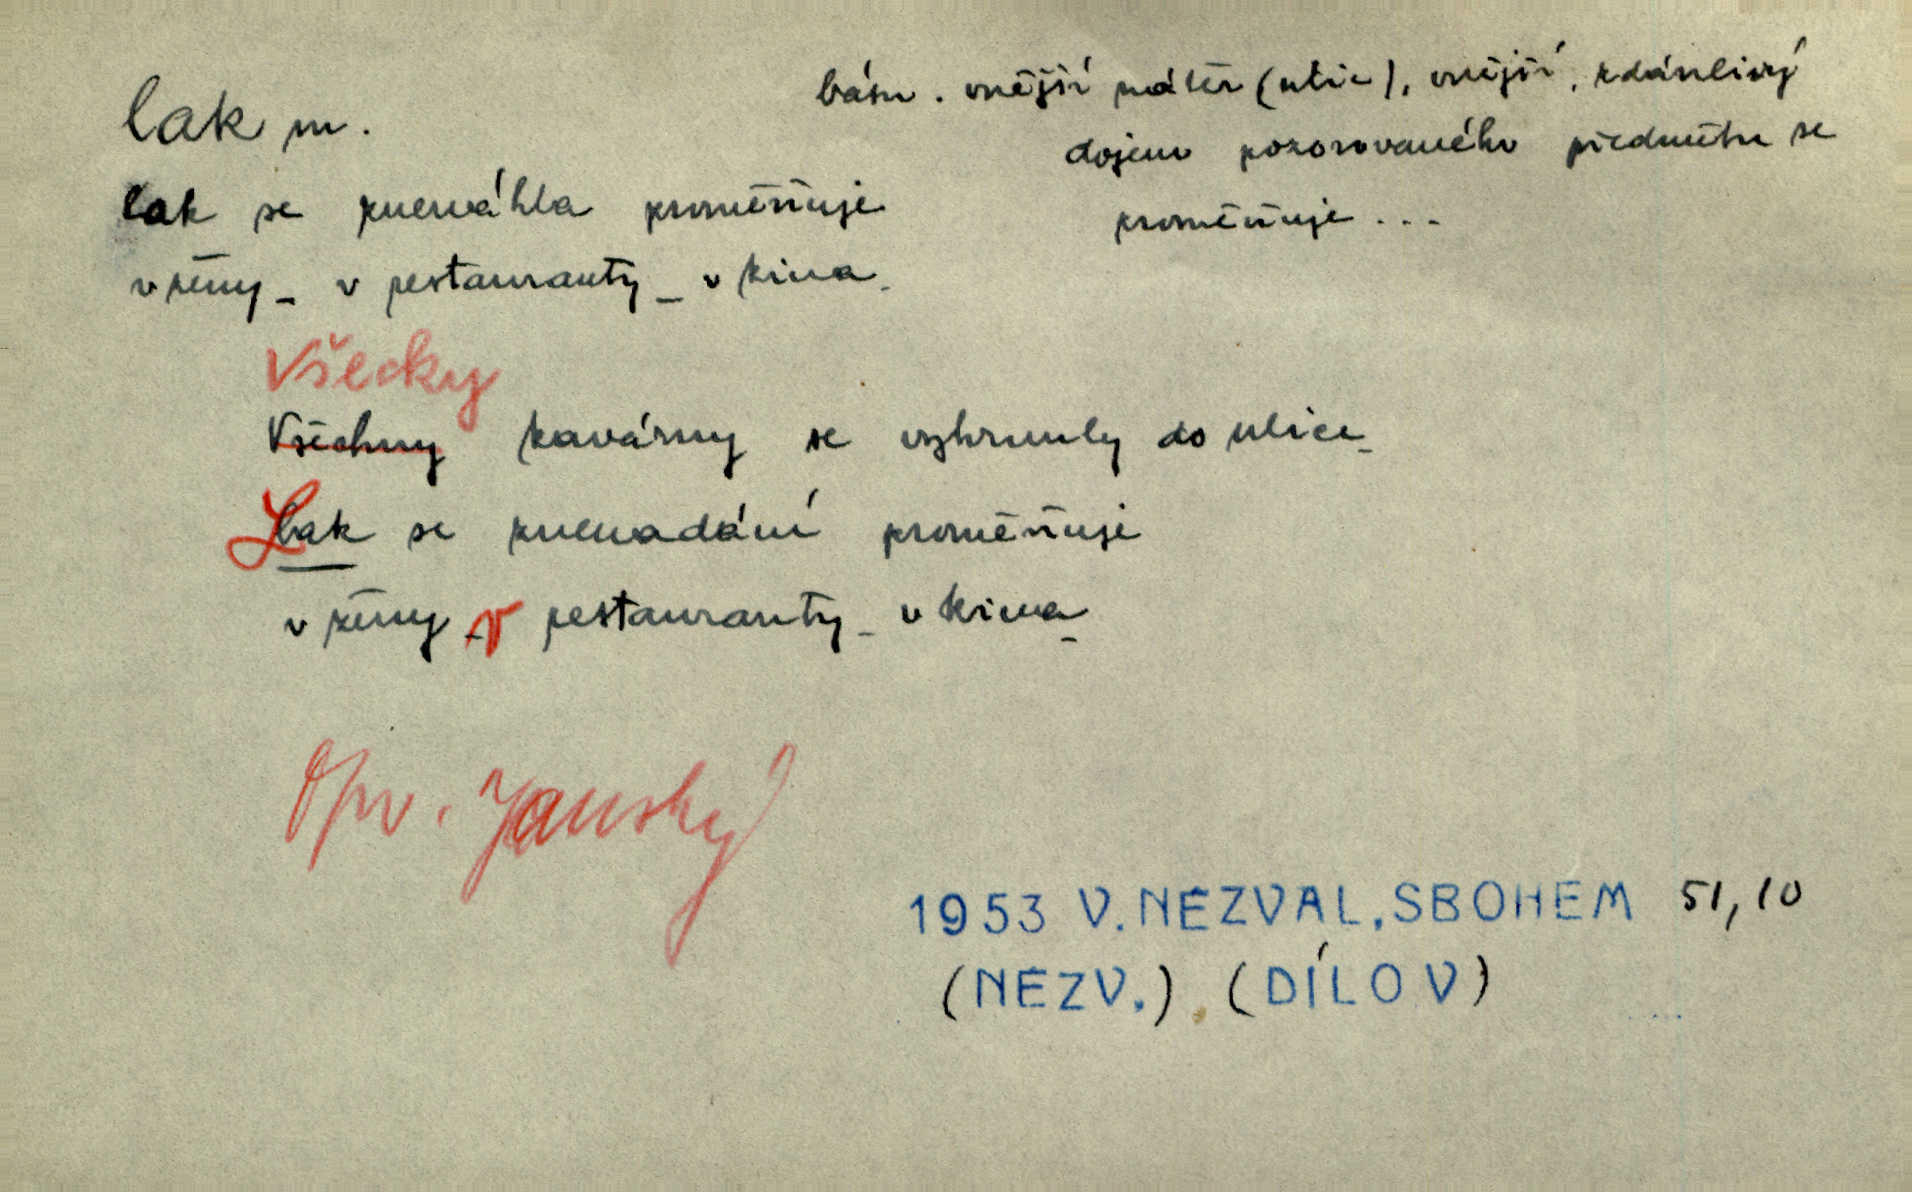 lak m.
básn. vnější nátěr (ulic), vnější, zdánlivý
dojem pozorovaného předmětu se
proměňuje ...
lak se znenáhla proměňuje
v ženy - v restauranty - v kina.
Všecky
Všechny kavárny se vyhrnuly do ulice
Lak se znenadání proměňuje
v ženy - v restauranty - v kina
Opr. Janský
1953 V. NEZVAL, SBOHEM 51,10
(NEZV.) (DÍLO V)